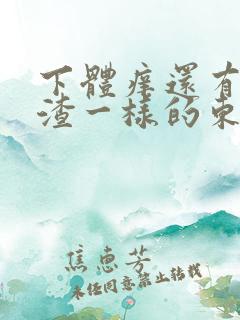 下體痒還有
渣一樣的東
焦惠芳
未经同意禁止转载